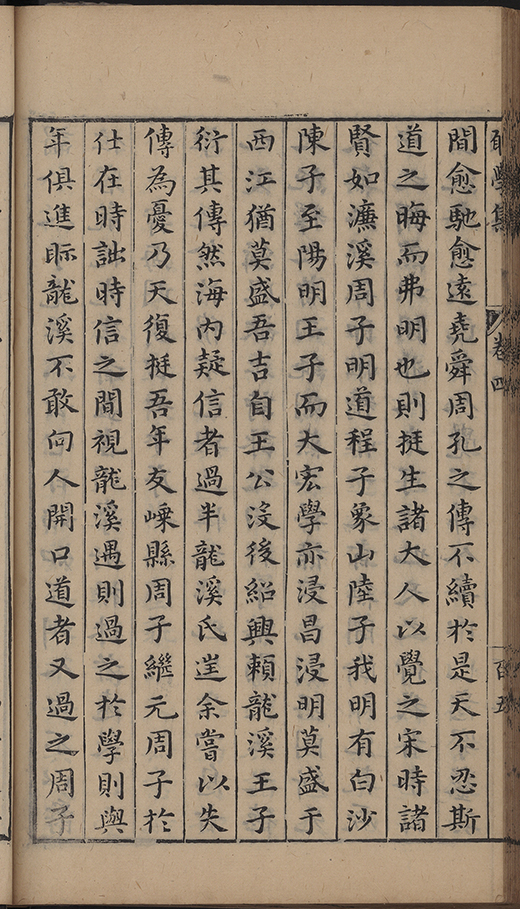 學集 卷四
間愈馳愈遠堯舜周孔之傳不續於是天不忍斯
道之晦而弗明也則挺生諸大人以覺之宋時諸
賢如濂溪周子明道程子象山陸子我明有白沙
陳子至陽明王子而大宏學亦浸昌浸明莫盛于
西江猶莫盛吾吉自王公沒後紹興賴龍溪王子
衍其傳然海內疑信者過半龍溪氏逞余嘗以失
傳為憂乃天復挺吾年友嵊縣周子繼元周子於
仕在時詘時信之間視龍溪遇則過之於學則與
年俱進眎龍溪不敢向人開口道者又過之周子